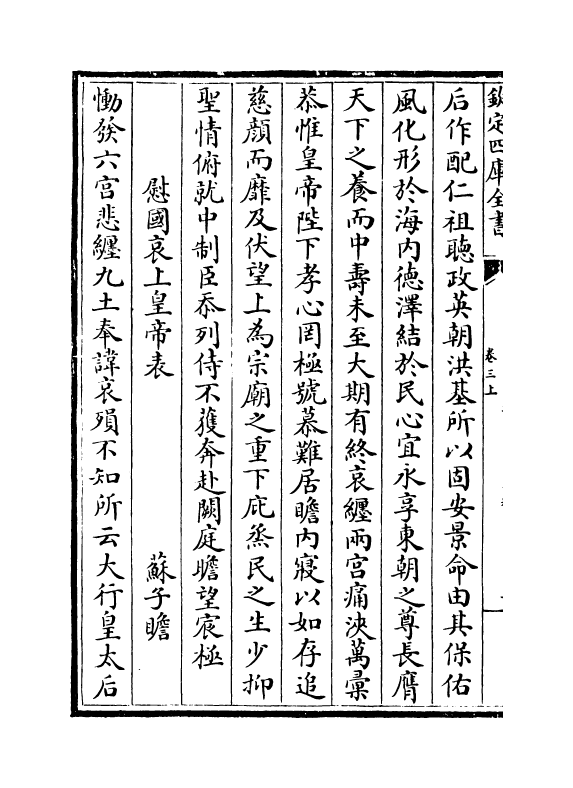 欽定四庫全書
卷三上
后作配仁祖聽政英朝洪基所以固安景命由其保佑
風化形於海内德澤結於民心宜永享東朝之尊長膺
天下之養而中壽未至大期有終哀纏兩宫痛浹萬彚
恭惟皇帝陛下孝心罔極號慕難居瞻内寢以如存追
慈顔而靡及伏望上為宗廟之重下庇烝民之生少抑
聖情俯就中制臣忝列侍不獲奔赴闕庭瞻望宸極
慰國哀上皇帝表 蘇子瞻
慟發六宫悲纏九土奉諱哀殞不知所云大行皇太后